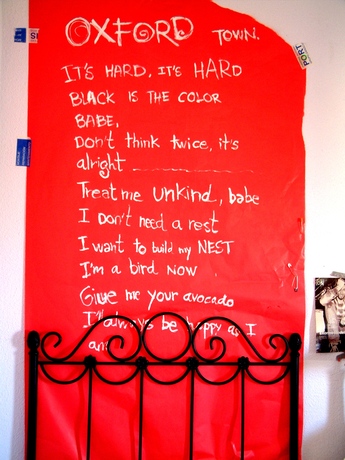 OXFORD TOWN.
IT'S HARD, IT'S HARD
BLACK IS THE COLOR
BABE,
Don't think twice, it's
alright
Treat me unkind, babe
I DON'T need a rest
I want to build my NEST
I'm a bird now
Give me your avocado
I'll always be happy as I
PORT